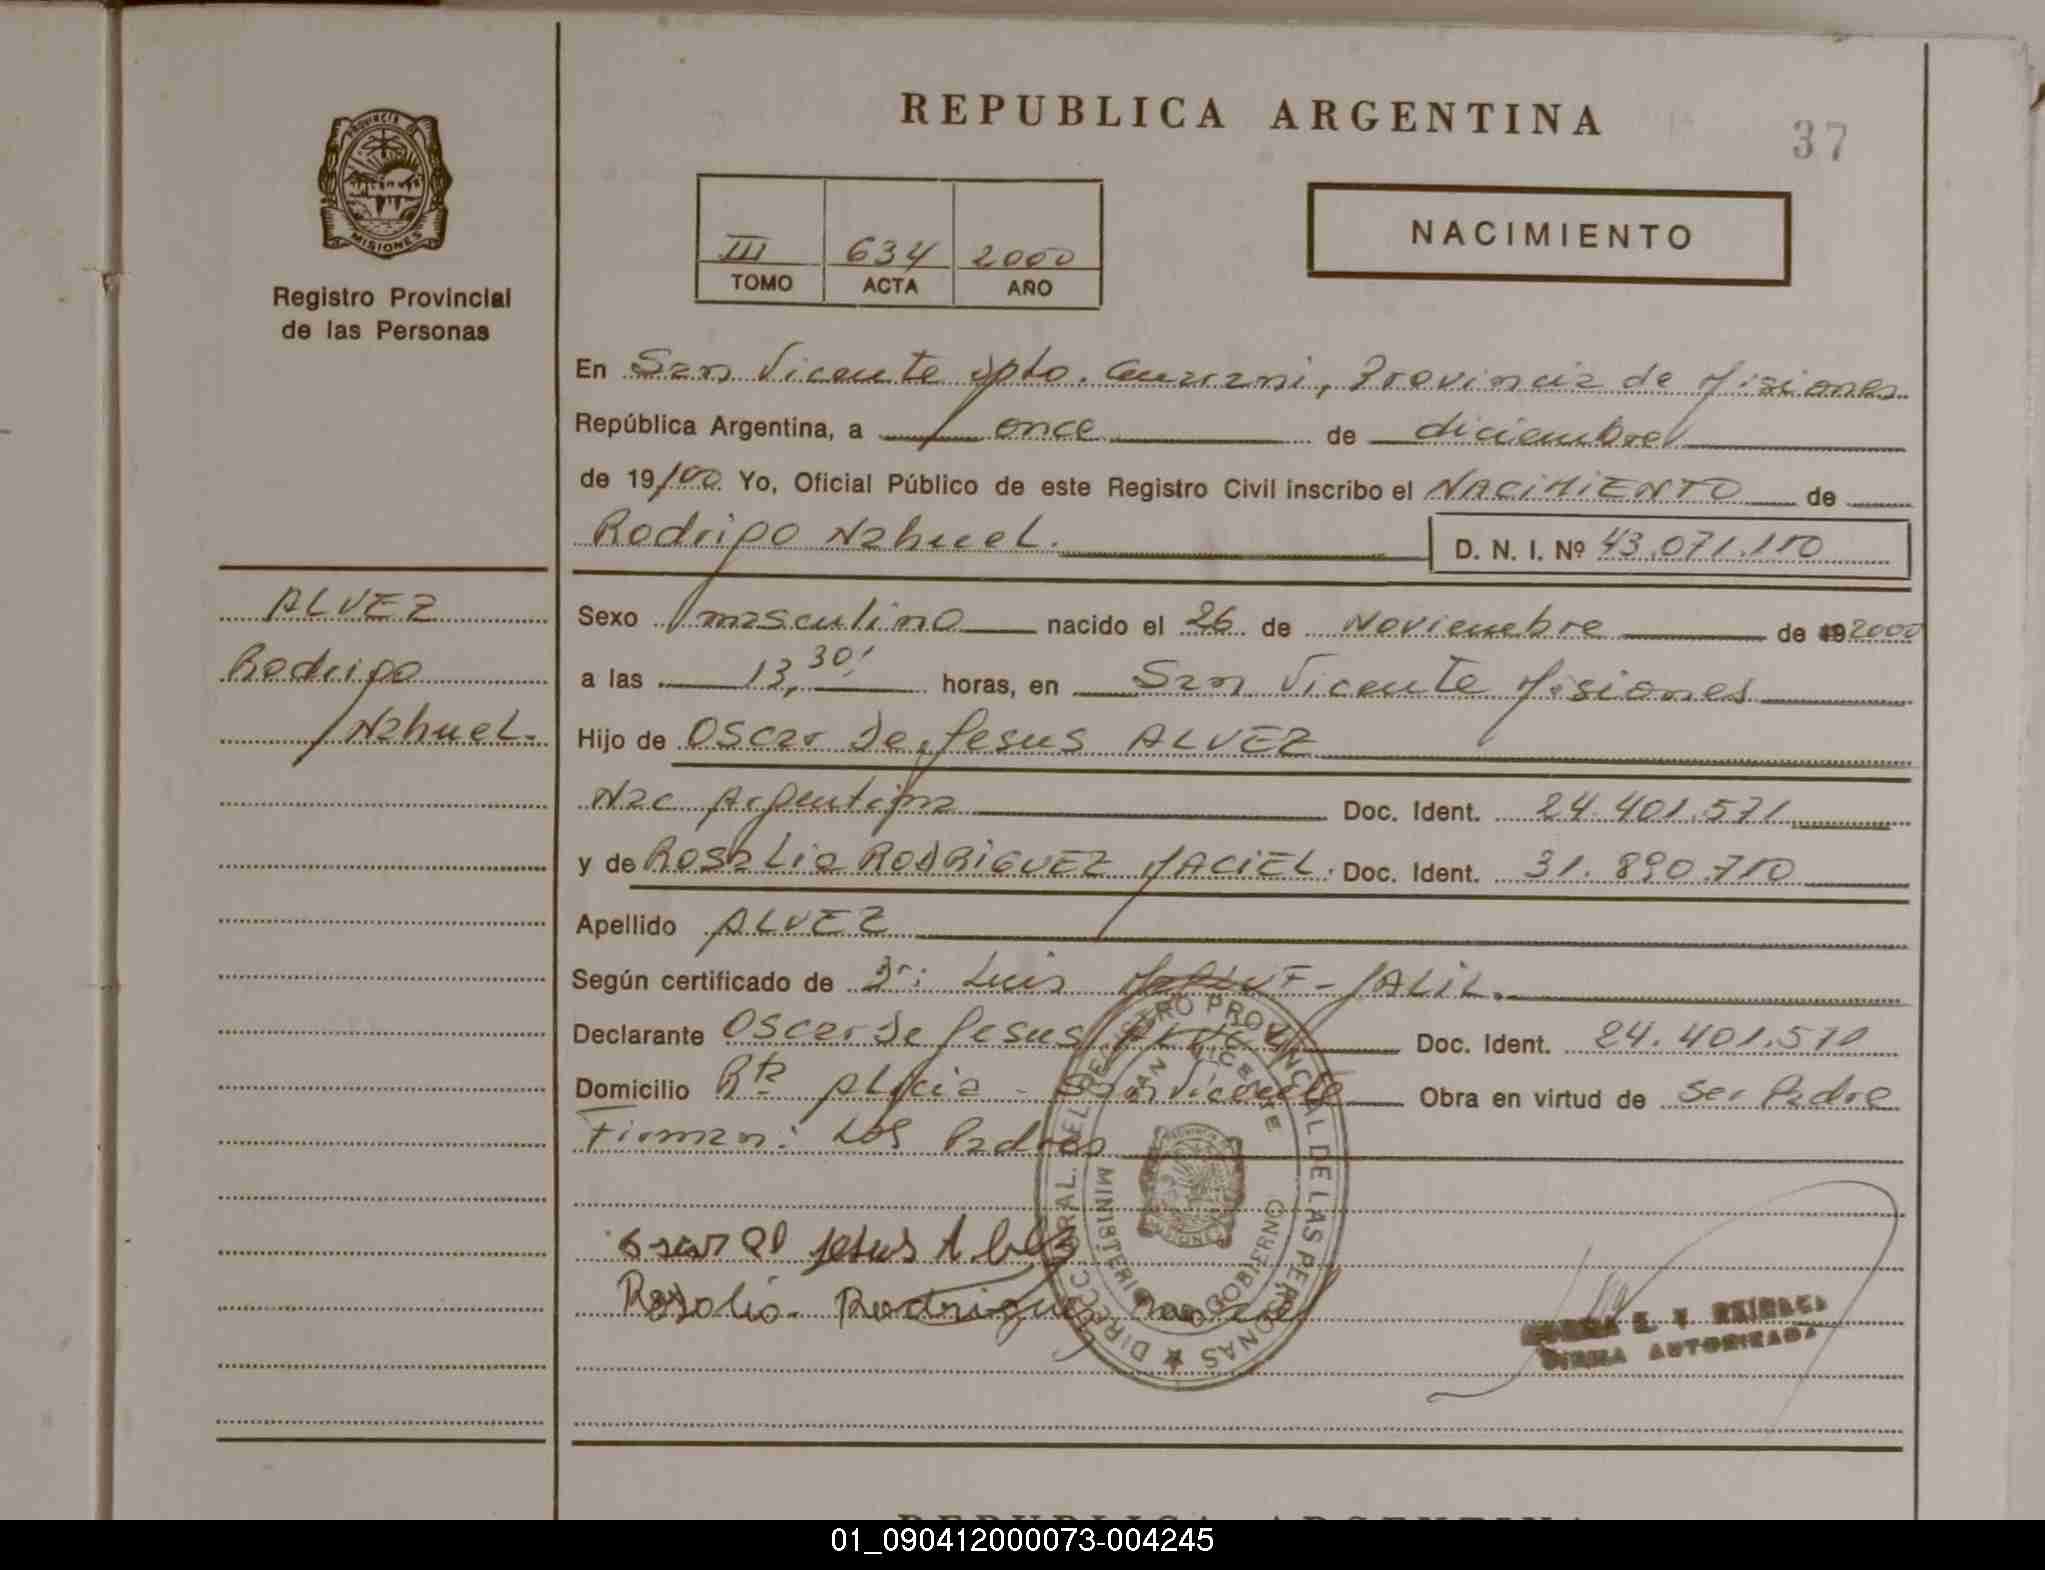 REPUBLICA ARGENTINA
37
PROVINCIA DE
MISIONES
Registro Provincial
de las Personas
III 634 2000
TOMO ACTA AÑO
NACIMIENTO
En San Vicente dpto. Guarani, Provincia de Misiones
República Argentina, a once de diciembre
de 19/00 Yo, Oficial Público de este Registro Civil inscribo el NACIMIENTO de
Rodrigo Nahuel. D. N. I. Nº 43.071.110
ALVEZ
Rodrigo
Nahuel.
Sexo masculino nacido el 26 de Noviembre de 2000
a las 13,30' horas, en San Vicente Misiones
Hijo de Oscar De Jesus ALVEZ
Nac Argentina Doc. Ident. 24.401.571
y de Rosalia RODRIGUEZ MACIEL. Doc. Ident. 31.890.710
Apellido ALVEZ
Según certificado de Dr: Luis JALIL.
Declarante Oscar De Jesus ALVEZ Doc. Ident. 24.401.571
Domicilio Rta Alicia - San Vicente Obra en virtud de ser Padre
Firman: Los Padres
DIRECC. GRAL. DEL REGISTRO PROVINCIAL DE LAS PERSONAS
SAN VICENTE
MINISTERIO DE GOBIERNO
oscar de jesus Albez
Rosalia Rodriguez
FIRMA AUTORIZADA
REPUBLICA ARGENTINA
01_090412000073-004245